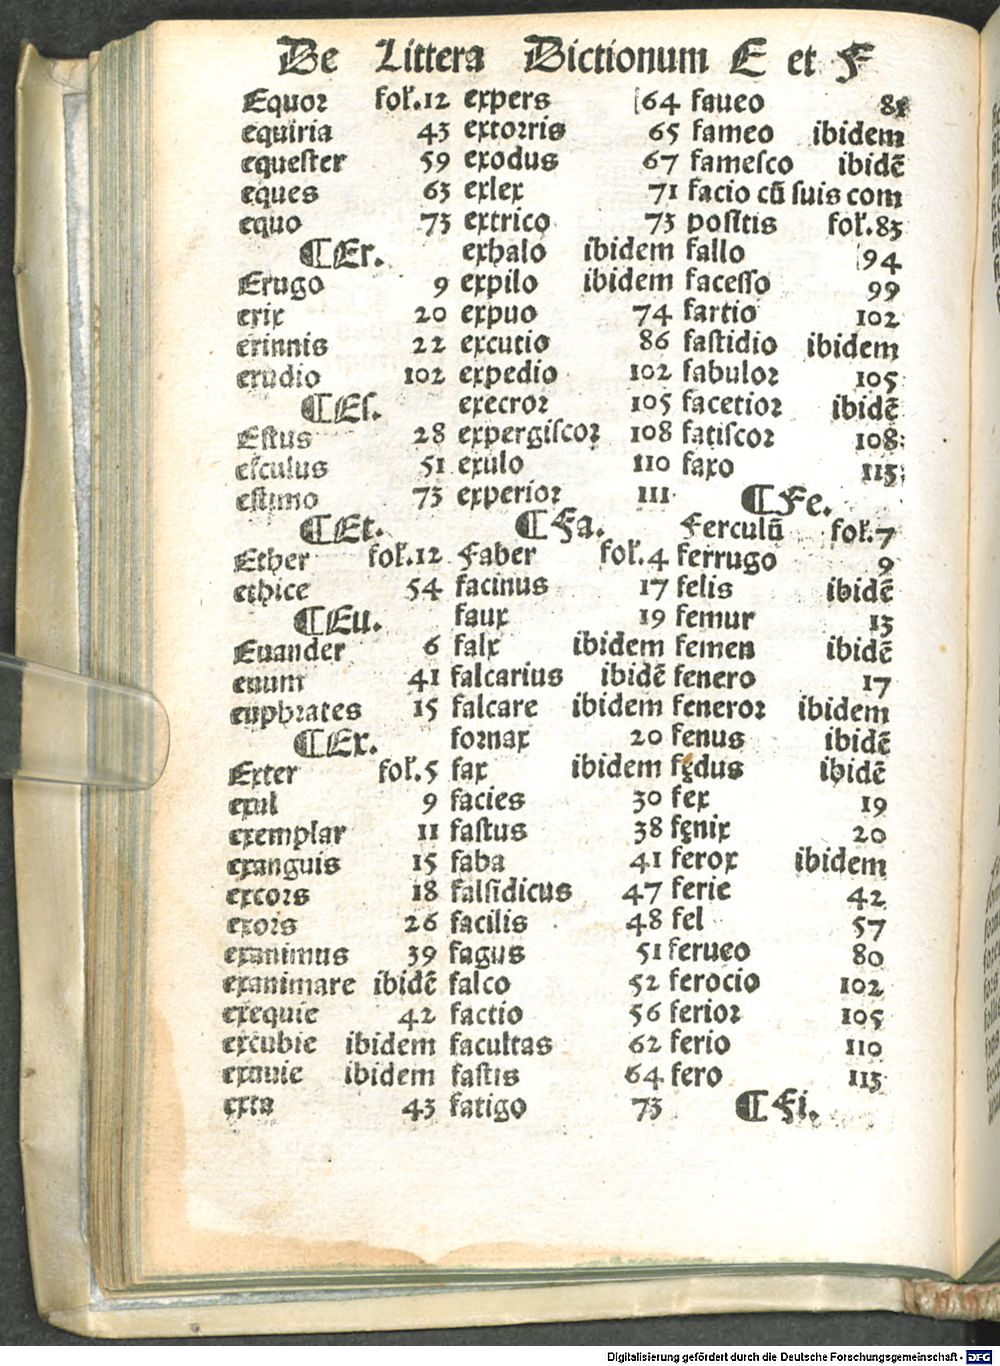 De Littera Dictionum E et F
Equor fol.12
equiria 43
equester 59
eques 63
equo 73
¶Er.
Erugo 9
erix 20
erinnis 22
erudio 102
¶Es.
Estus 28
esculus 51
estimo 73
¶Et.
Ether fol.12
ethice 54
¶Eu.
Euander 6
euum 41
euphrates 15
¶Ex.
Exter fol.5
exul 9
exemplar 11
exanguis 15
excors 18
exors 26
exanimus 39
exanimare ibidē
exequie 42
excubie ibidem
exuuie ibidem
exta 43
expers 64
extorris 65
exodus 67
exlex 71
extrico 73
exhalo ibidem
expilo ibidem
expuo 74
excutio 86
expedio 102
execror 105
expergiscor 108
exulo 110
experior 111
¶Fa.
Faber fol.4
facinus 17
faux 19
falx ibidem
falcarius ibidē
falcare ibidem
fornax 20
fax ibidem
facies 30
fastus 38
faba 41
falsidicus 47
facilis 48
fagus 51
falco 52
factio 56
facultas 62
fastis 64
fatigo 73
faueo
fameo ibidem
famesco ibidē
facio cū suis com
positis fol.83
fallo 94
facesso 99
fartio 102
fastidio ibidem
fabulor 105
facetior ibidē
fatiscor 108
faxo 113
¶Fe.
Ferculū fol.7
ferrugo 9
felis ibidē
femur 13
femen ibidē
fenero 17
feneror ibidem
fenus ibidē
fędus ibidē
fex 19
fęnix 20
ferox ibidem
ferie 42
fel 57
ferueo 80
ferocio 102
ferior 105
ferio 110
fero 113
¶Fi.
Digitalisierung gefördert durch die Deutsche Forschungsgemeinschaft - DFG